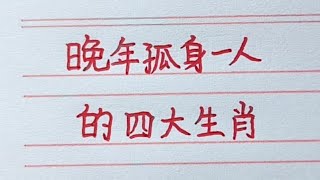 晚年孤身一人
的四大生肖